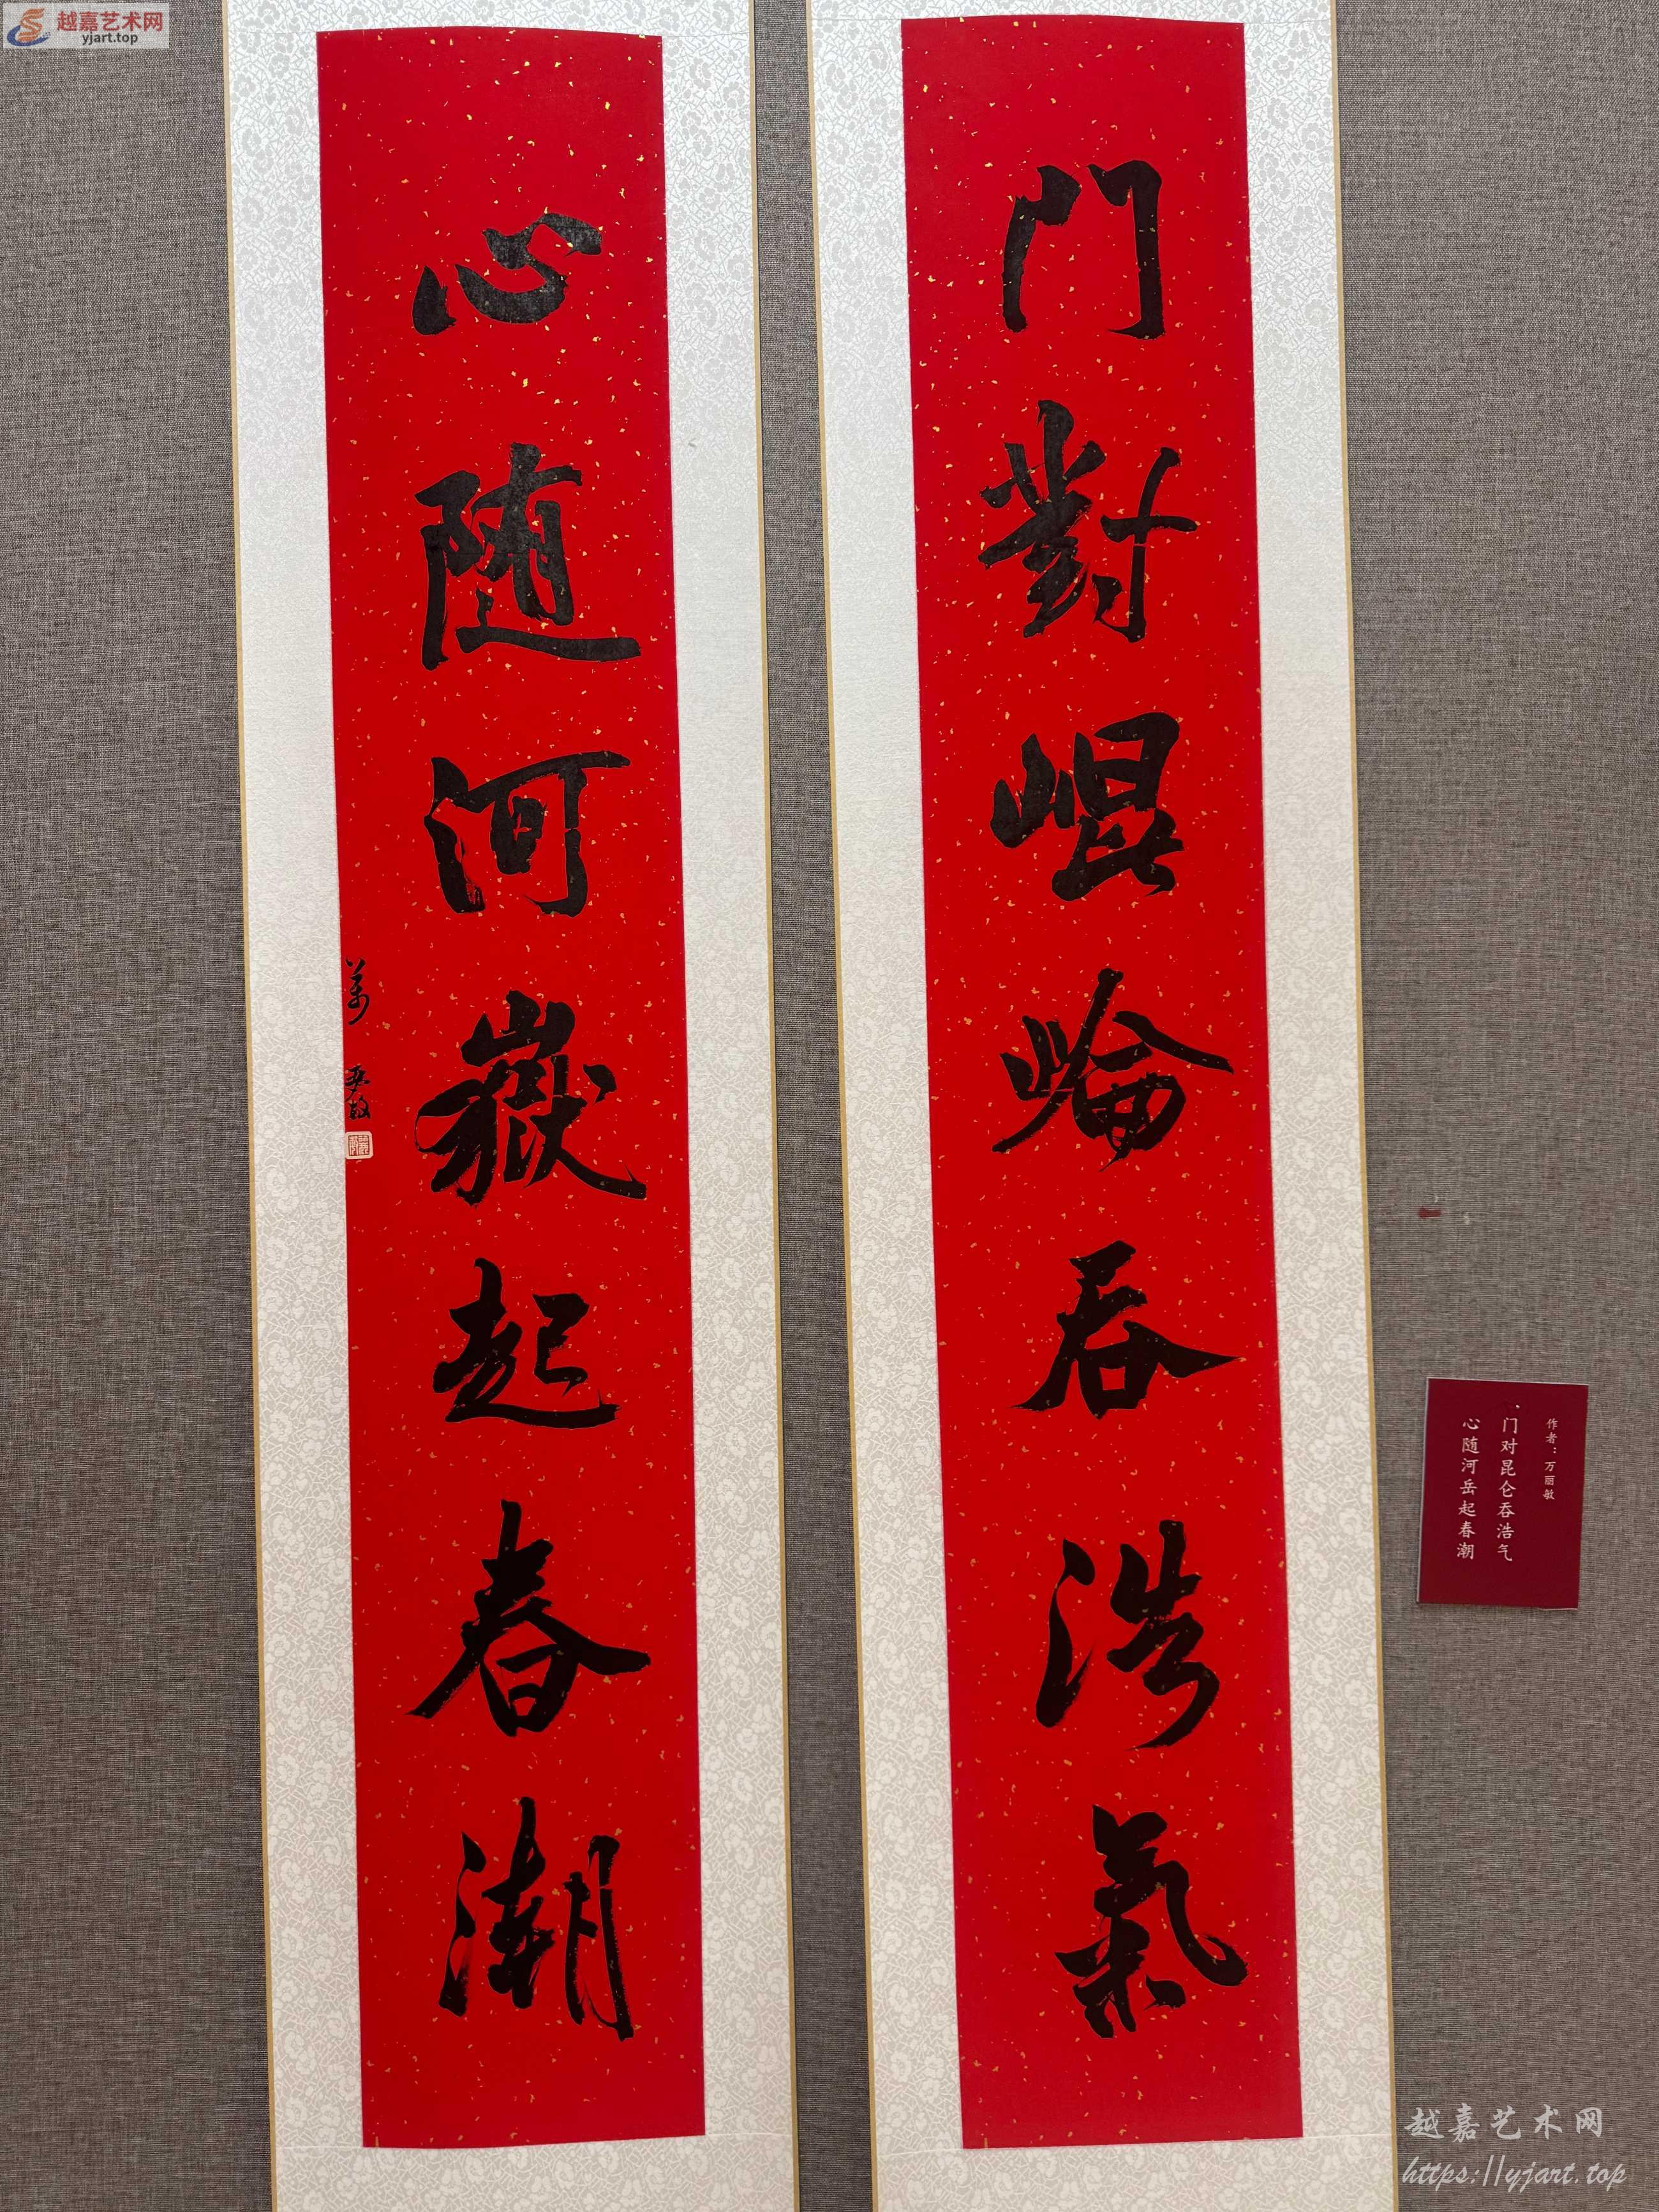 越嘉艺术网
yjart.top
门對崐崘吞浩氣
心随河嶽起春潮
萬丽敏
作者：万丽敏
门对昆仑吞浩气
心随河岳起春潮
越嘉艺术网
https://yjart.top